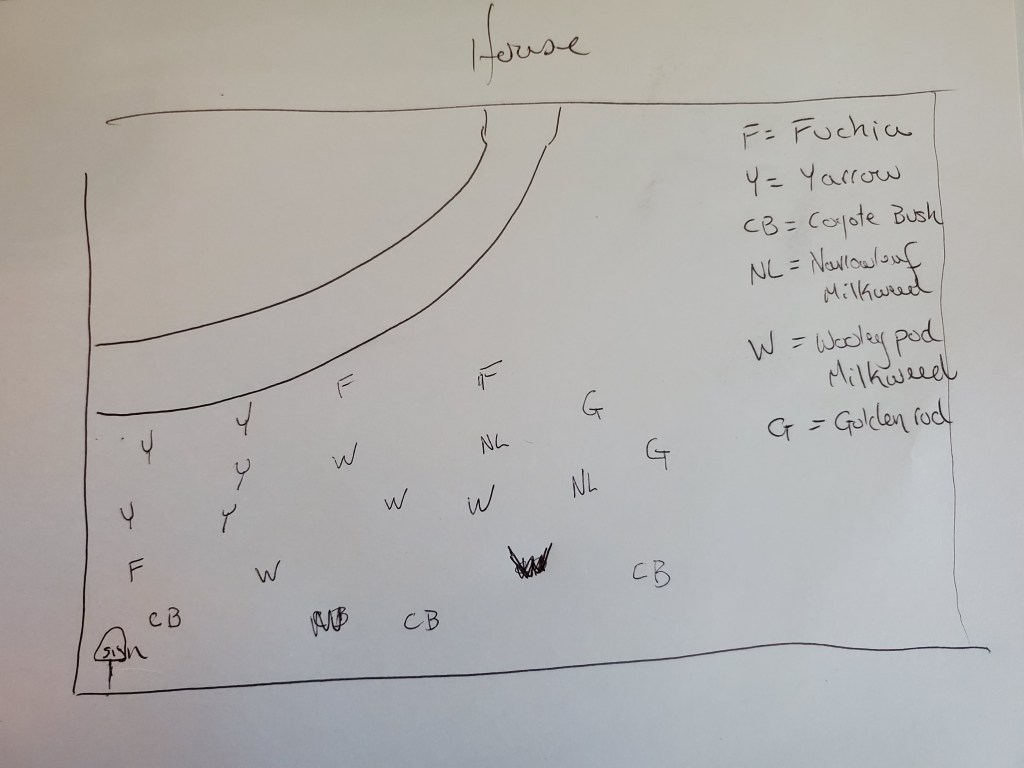 House
F = Fuchia
Y = Yarrow
CB = Coyote Bush
NL = Narrowleaf
Milkweed
W = Wooley pod
Milkweed
G = Golden rod
F F
G
Y
Y W NL G
Y
W W NL
Y Y
F W CB
CB CB
sign